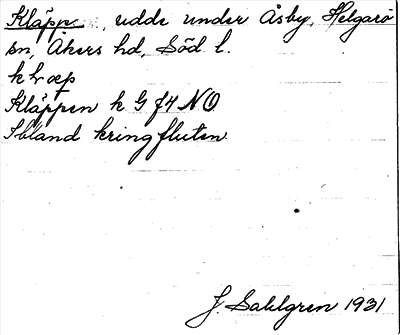 Kläpp , udde under Åsby, Helgarö
sn, Åkers hd, Söd. l.
Kläppen k G f4 NO
Ibland kringfluten
J. Sahlgren 1931